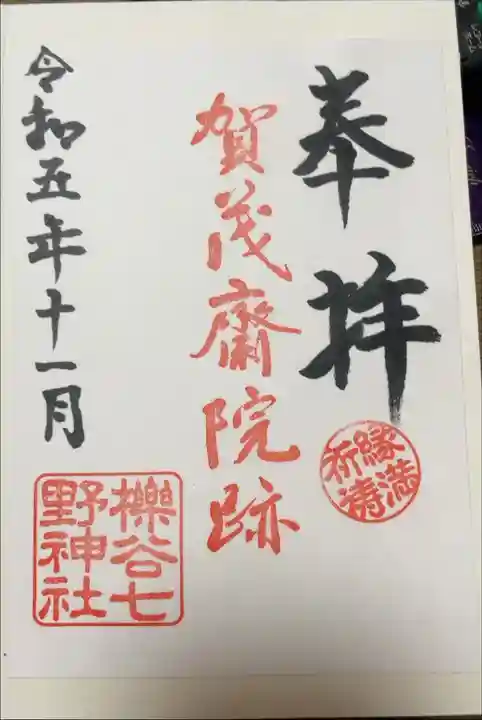 奉拝
縁満祈祷
賀茂齋院跡
令和五年十一月
櫟谷七野神社